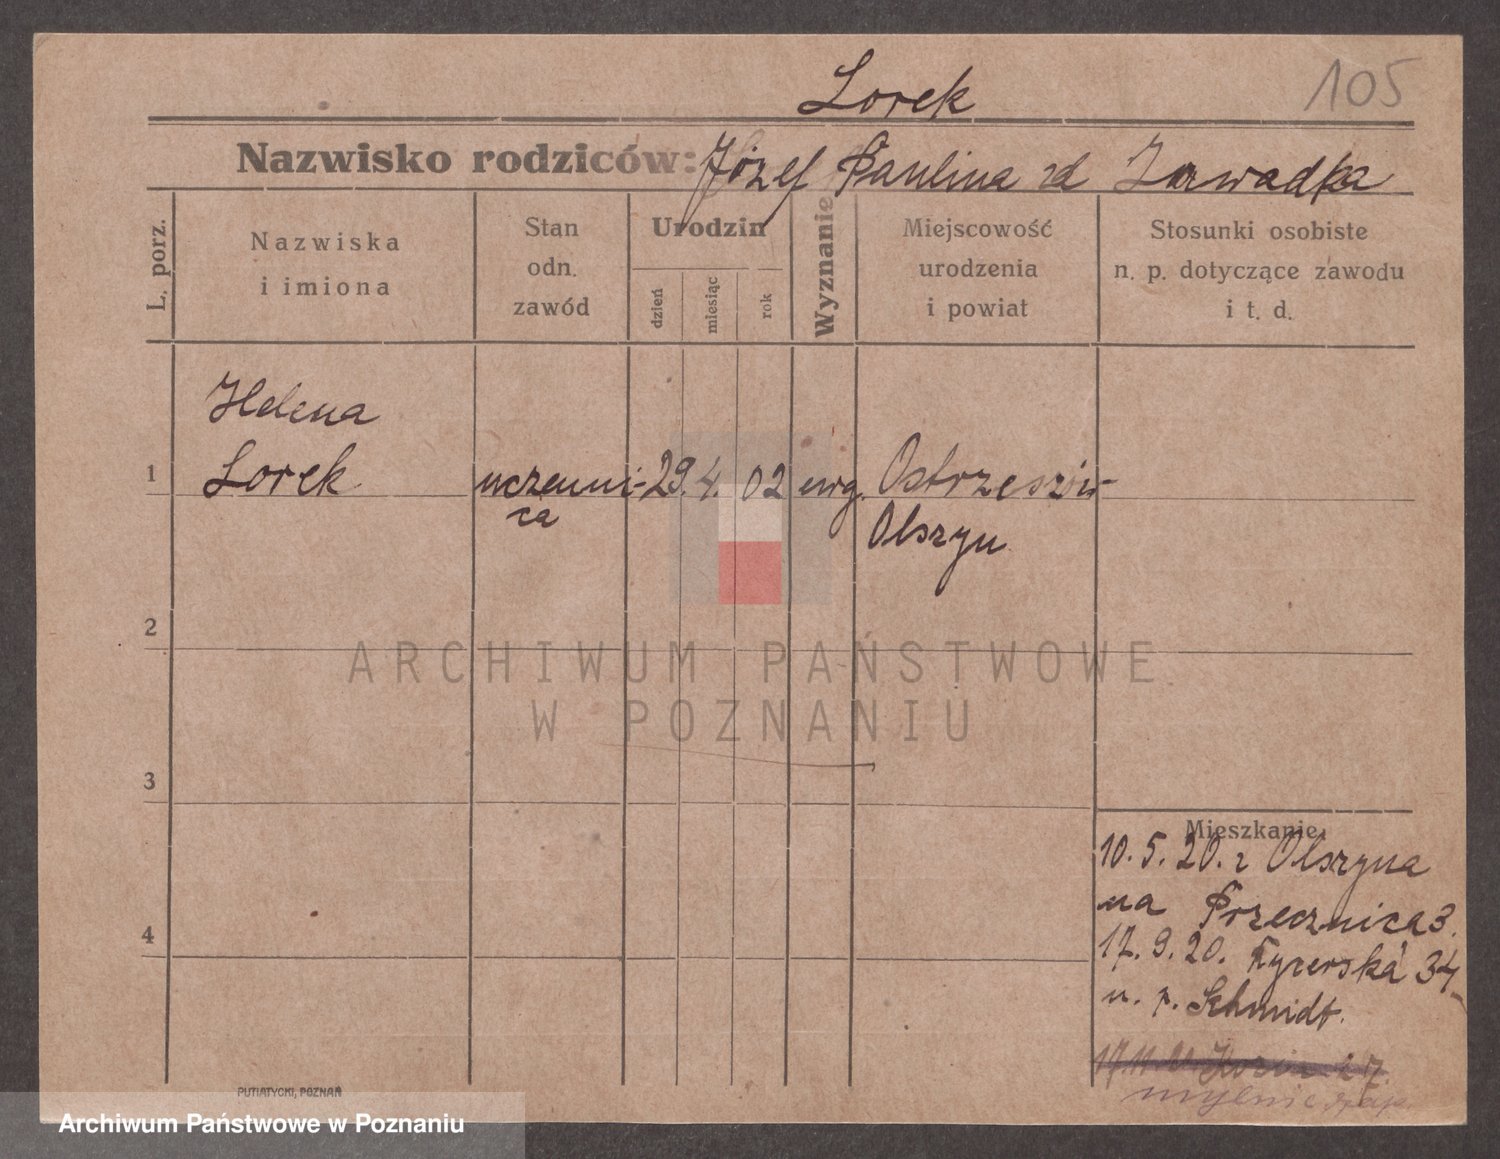 Lorek
105
Nazwisko rodziców: Józef Paulina zd Zawadka
L. porz.
Nazwiska
i imiona
Stan
odn.
zawód
Urodzin
dzień
miesiąc
rok
Wyznanie
Miejscowość
urodzenia
i powiat
Stosunki osobiste
n. p. dotyczące zawodu
i t. d.
Helena
1 Lorek uczenni- 29. 4. 02 ewg. Ostrzeszów-
ca Olszyn
2
ARCHIWUM PAŃSTWOWE
W POZNANIU
3
Mieszkanie.
10. 5. 20. z Olszyna
na Przecznica 3.
4
17. 9. 20. Rycerska 34
u. p. Schmidt.
mylnie
PUTIATYCKI, POZNAŃ
Archiwum Państwowe w Poznaniu